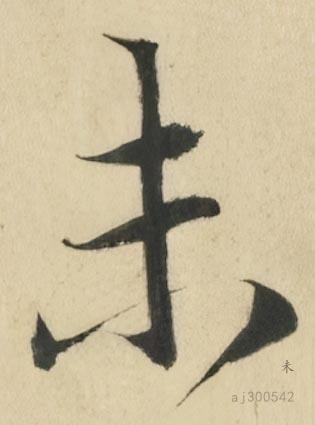 未
未
aj300542